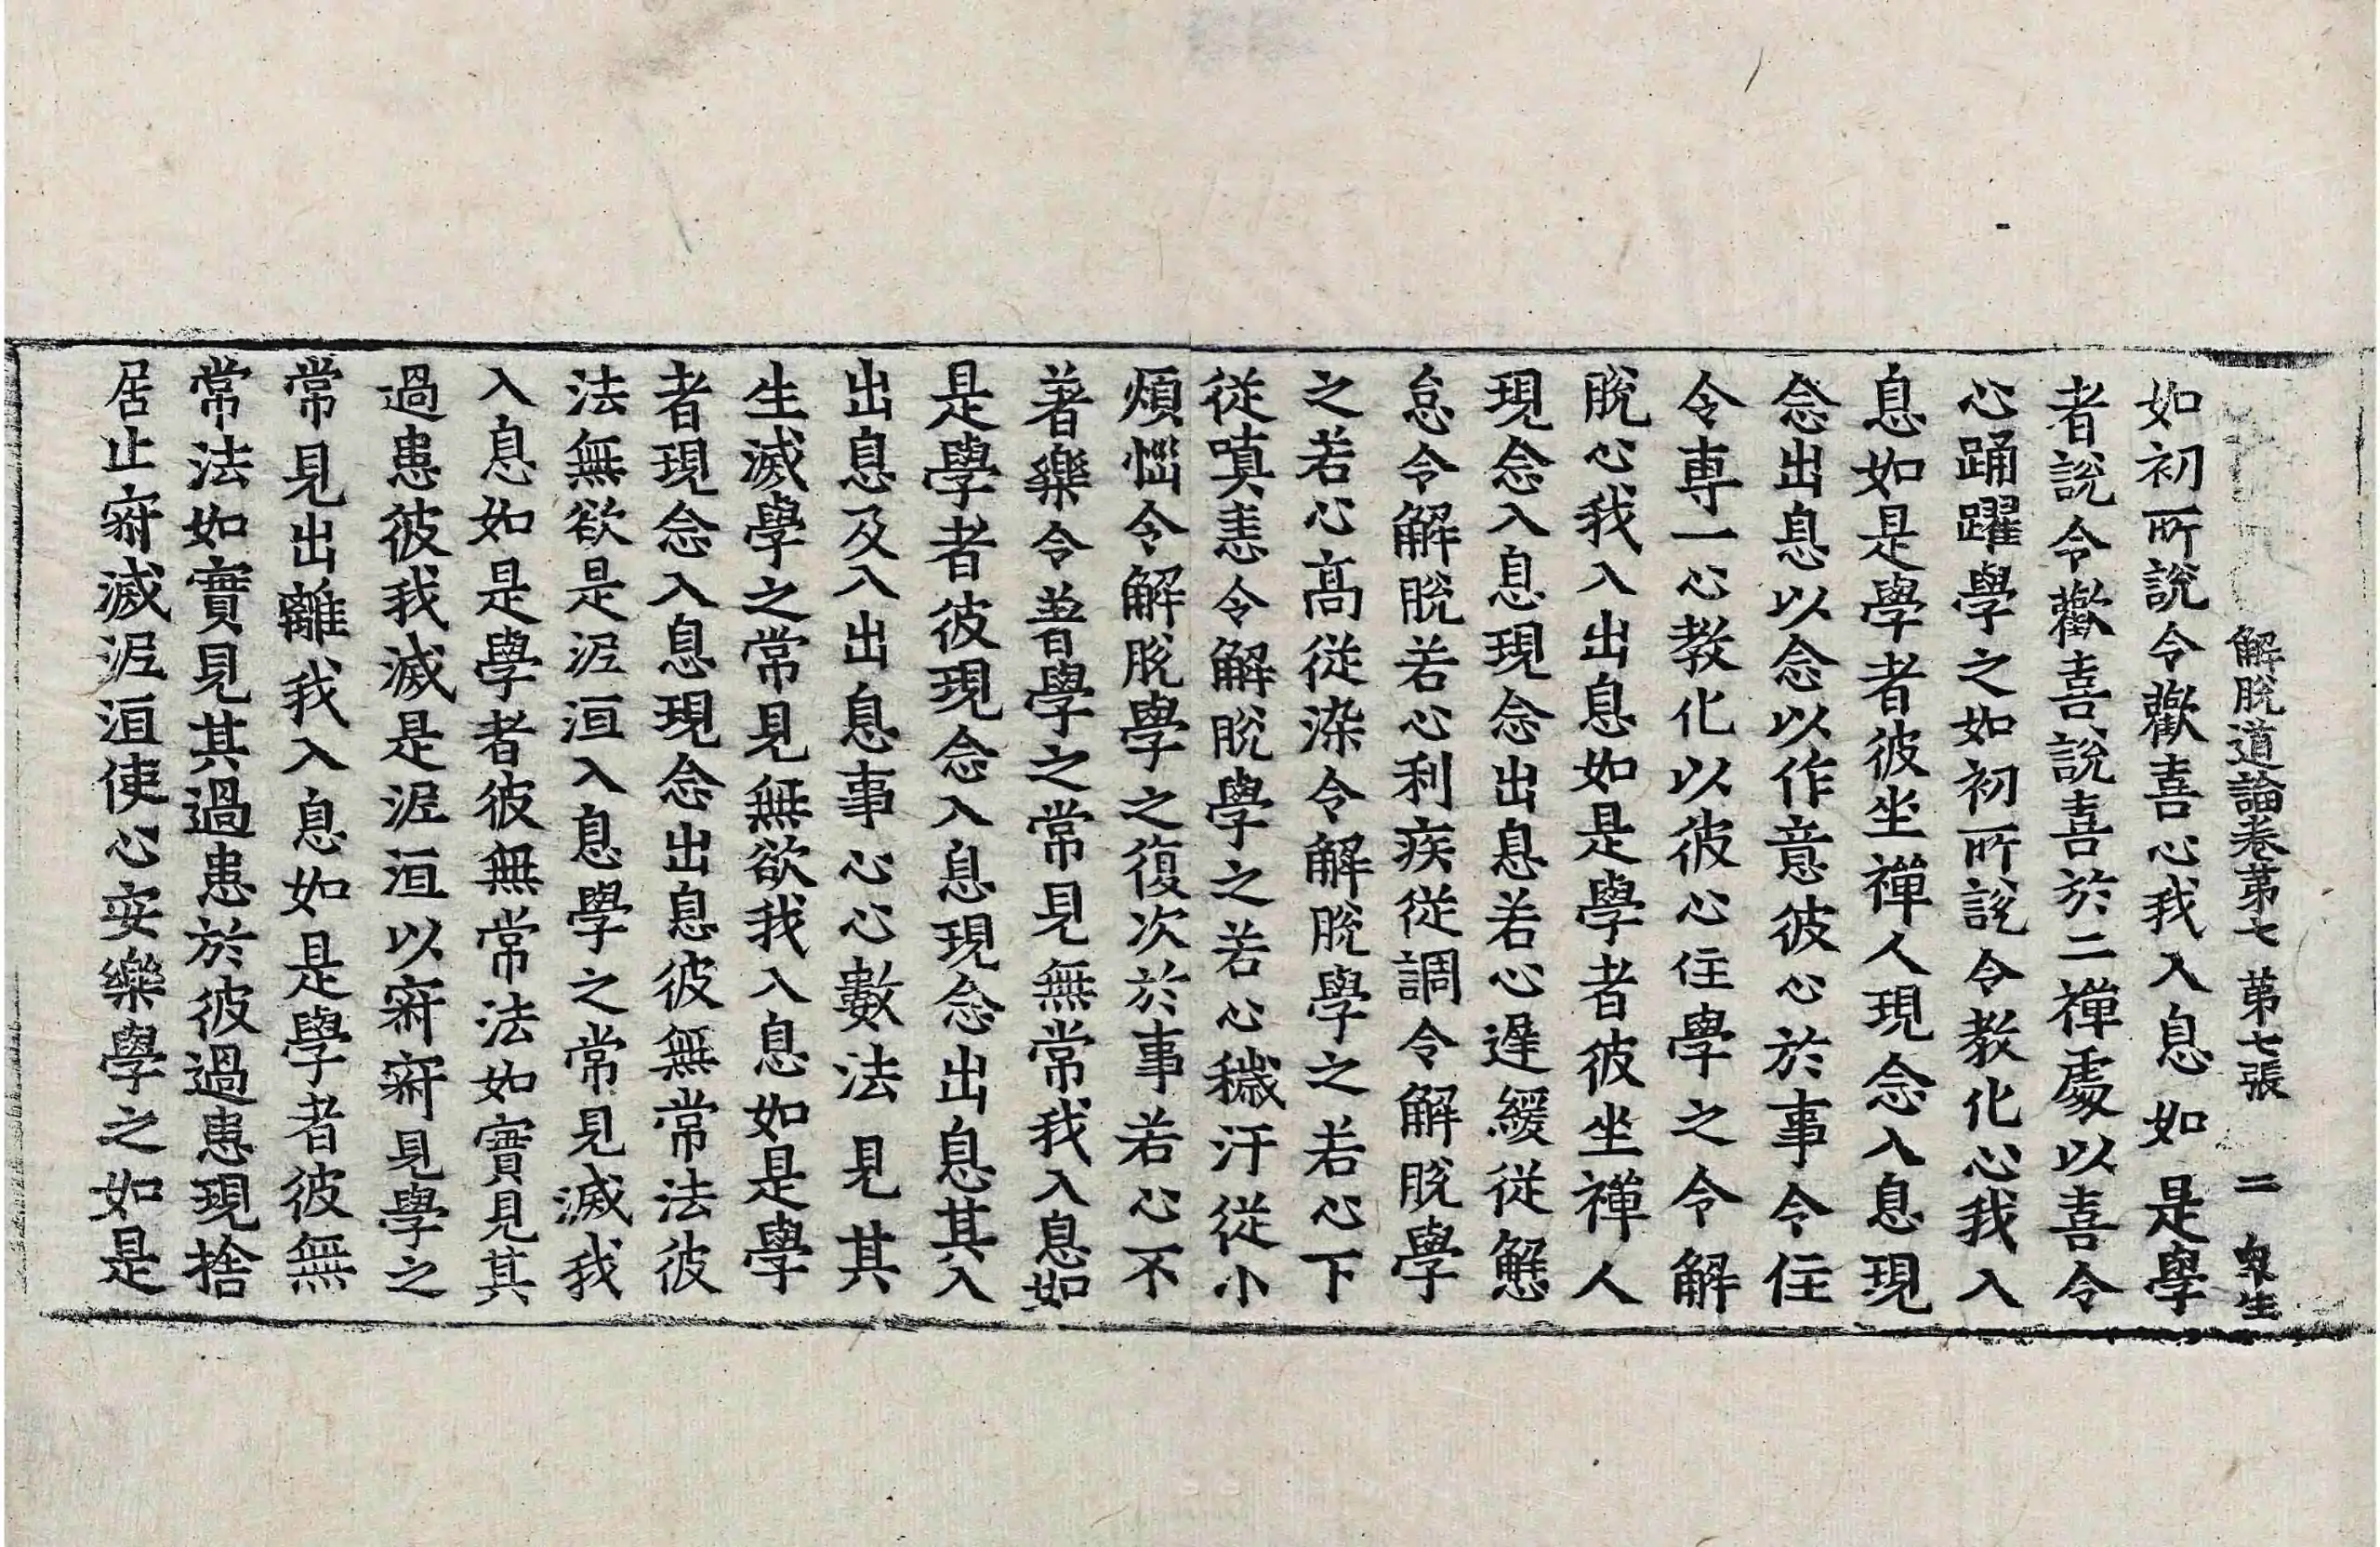 解脫道論卷第七 第七張 二 衆生
如初所說令歡喜心我入息如是學
者說令歡喜說喜於二禪處以喜令
心踊躍學之如初所說令教化心我入
息如是學者彼坐禪人現念入息現
念出息以念以作意彼心於事令住
令專一心教化以彼心住學之令解
脫心我入出息如是學者彼坐禪人
現念入息現念出息若心遲緩從懈
怠令解脫若心利疾從調令解脫學
之若心高從染令解脫學之若心下
從嗔恚令解脫學之若心穢汙從小
煩惱令解脫學之復次於事若心不
著樂令普學之常見無常我入息如
是學者彼現念入息現念出息其入
出息及入出息事心心數法見其
生滅學之常見無欲我入息如是學
者現念入息現念出息彼無常法彼
法無欲是泥洹入息學之常見滅我
入息如是學者彼無常法如實見其
過患彼我滅是泥洹以寂寂見學之
常見出離我入息如是學者彼無
常法如實見其過患於彼過患現捨
居止寂滅泥洹使心安樂學之如是